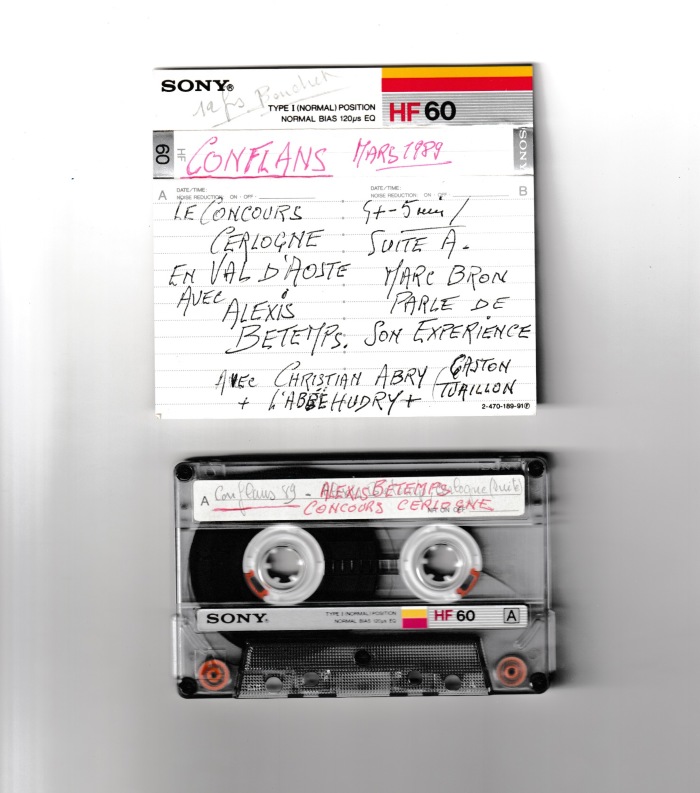 SONY®
TYPE I (NORMAL) POSITION
NORMAL BIAS 120µs EQ
HF 60
60
HF
CONFLANS MARS 1989
SONY
A
DATE/TIME:
NOISE REDUCTION: ON · OFF:
DATE/TIME:
NOISE REDUCTION: ON · OFF:
B
LE CONCOURS
CERLOGNE
EN VAL D'AOSTE
AVEC
ALEXIS
BETEMPS.
4+-5 min/
SUITE A.
MARC BRON
PARLE DE
SON EXPERIENCE
AVEC CHRISTIAN ABRY (GASTON
+ L'ABBÉ HUDRY + TUAILLON
2-470-189-91
SONY
A Conflans 89 - ALEXIS BETEMPS
CONCOURS CERLOGNE
SONY®
TYPE I (NORMAL) POSITION
NORMAL BIAS 120µs EQ
HF 60
A